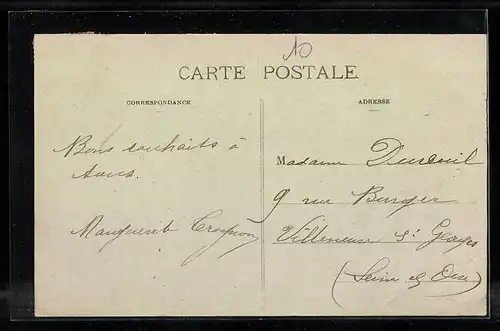 CARTE POSTALE
CORRESPONDANCE
ADRESSE
Bons souhaits à
tous.
Marguerite
Madame Dureuil
9 rue Burger
Villeneuve St Georges
(Seine & Oise)